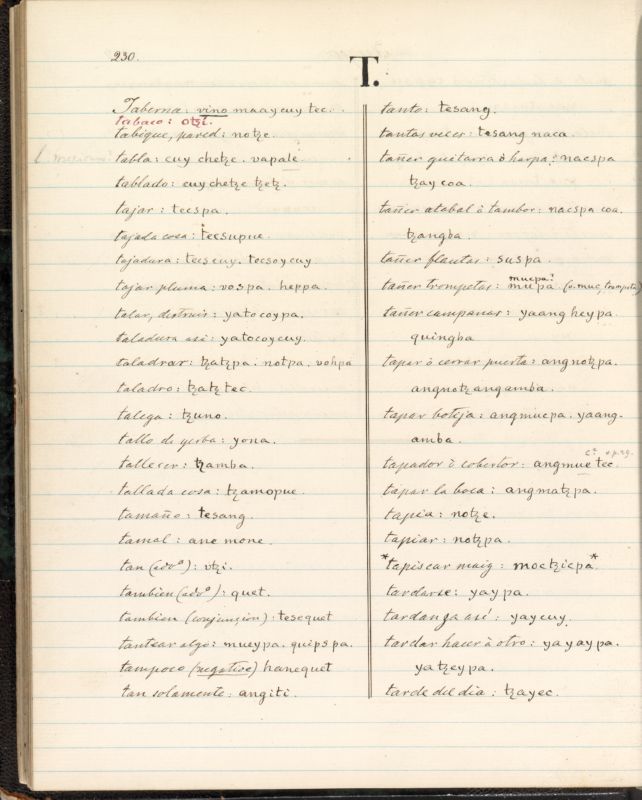 230.
T.
Taberna: vino muaycuy tec.
tabaco: otzi.
tabique, pared: notze.
tabla: cuy chetze. vapale
tablado: cuy chetze tzetz.
tajar: tecspa.
tajada cosa: tecsupue.
tajadura: tecscuy. tecsoycuy.
tajar pluma: vospa. heppa.
talar, destruir: yatocoypa.
taladura asi: yatocoycuy.
taladrar: tzatzpa: notpa. vohpa
taladro: tzatz tec.
talega: tzuno.
tallo de yerba: yona.
tallecer: tzamba.
tallada cosa: tzamopue.
tamaño: tesang.
tamal: ane mone.
tan (advo): vtzi.
tambien (advo): quet.
tambien (conjunsion): tesequet
tantear algo: mueypa. quipspa.
tampoco (negative) hanequet
tan solamente: angiti.
tanto: tesang.
tantas veces: tesang naca.
tañer guitarra ò harpa: nacspa
tzay coa.
tañer atabal ò tambor: nacspa coa.
tzangba.
tañer flautas: suspa.
muepa?
tañer trompetas: mu'pa. (v. muc, trompeta)
tañer campanas: yaang heypa.
quingba
tapar ò cerrar puerta: angnotzpa.
angnotzangamba.
tapar boteja: angmuepa. yaang-
amba.
tapador ò cobertor: angmue tec.
tapar la boca: angmatzpa.
tapia: notze.
tapiar: notzpa.
*tapiscar maiz: moctzicpa*
tardarse: yaypa.
tardanza asi: yaycuy.
tardar hacer à otro: yayaypa.
yatzeypa.
tarde del dia: tzayec.